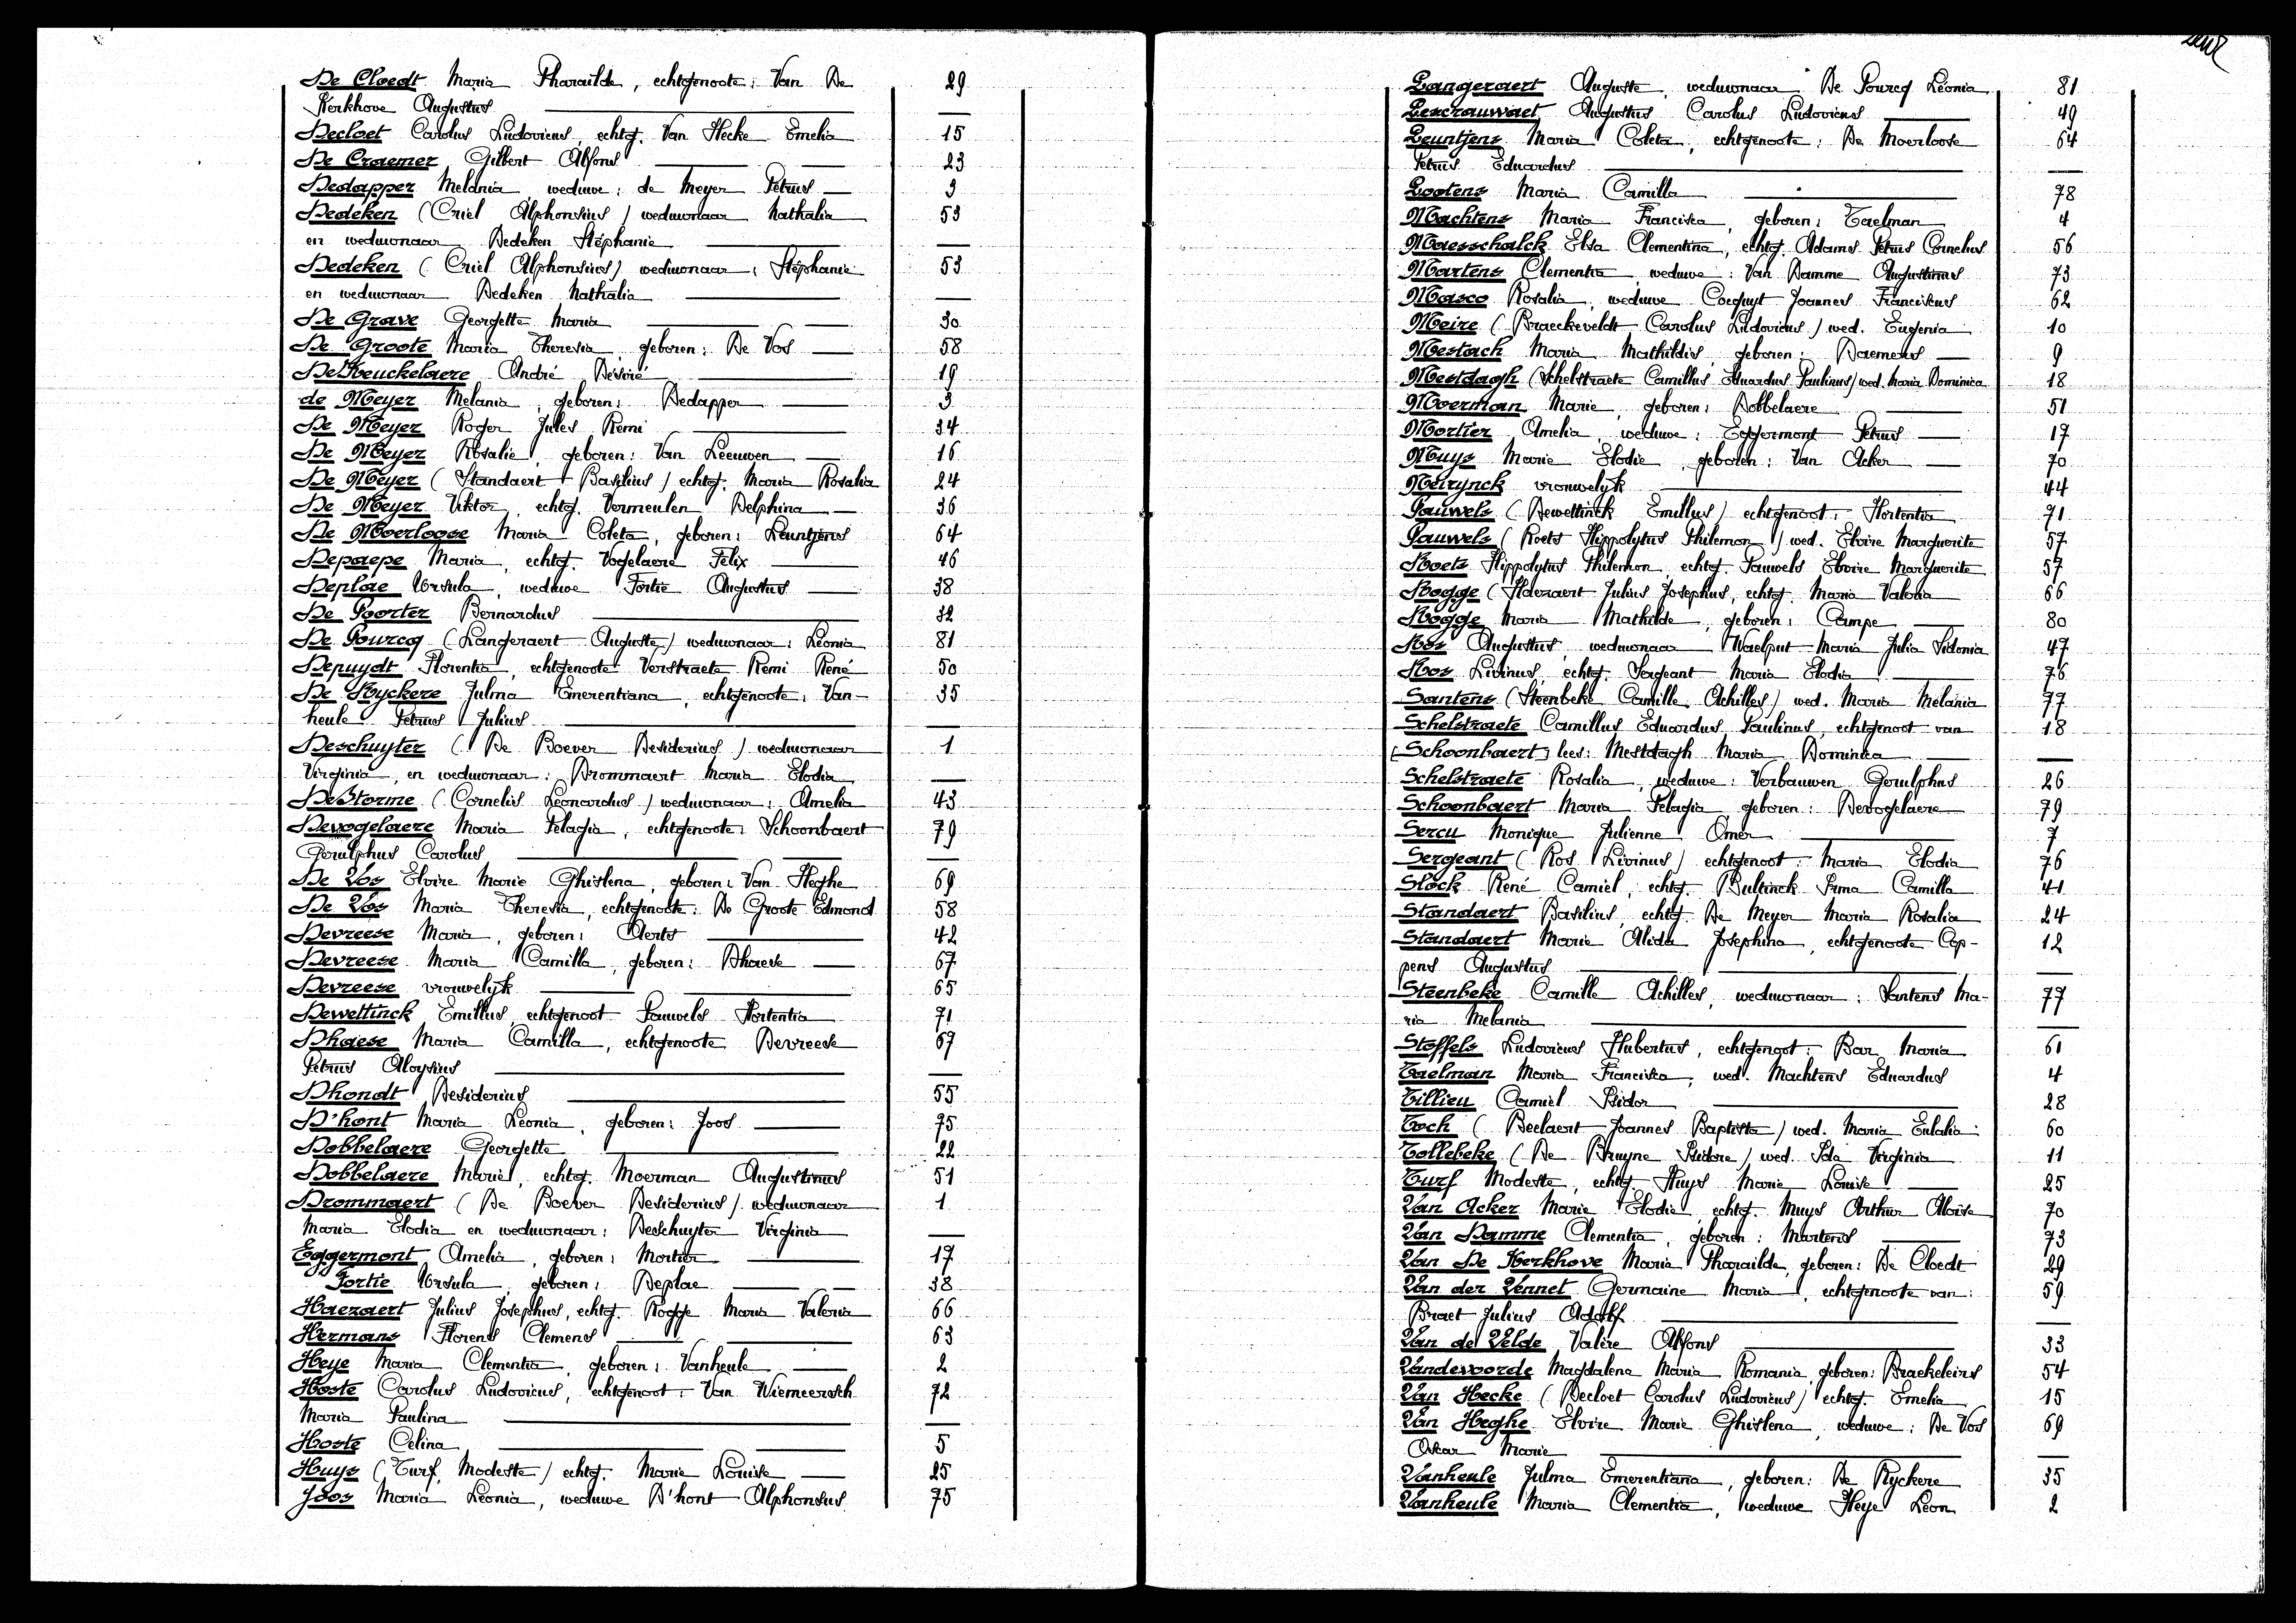 De Cloedt Maria Pharaïlde, echtgenoote: Van De 29
Kerkhove Augustus
Decloet Carolus Ludovicus, echtg. Van Hecke Emelia 15
De Craemer Gilbert Alfons 23
Dedapper Melania, weduwe: de Meyer Petrus 3
Dedeken (Criel Alphonsius) weduwnaar Nathalia 53
en weduwnaar Dedeken Stéphanie
Dedeken (Criel Alphonsius) weduwnaar: Stéphanie 53
en weduwnaar Dedeken Nathalia
De Grave Georgette Maria 30
De Groote Maria Theresia, geboren: De Vos 58
De Keuckelaere André Désiré 19
de Meyer Melania, geboren: Dedapper 3
De Meyer Roger Jules Remi 34
De Meyer Rosalie, geboren: Van Leeuwen 16
De Meyer (Standaert Basilius) echtg. Maria Rosalia 24
De Meyer Viktor, echtg. Vermeulen Delphina 36
De Moerloose Maria Coleta, geboren: Leuntjens 64
Depaepe Maria, echtg. Vogelaere Felix 46
Deplae Ursula, weduwe Fortie Augustus 38
De Poorter Bernardus 32
De Pourcq (Langeraert Auguste) weduwnaar: Léonia 81
Depuydt Florentia, echtgenoote Verstraete Remi René 50
De Ryckere Julma Emerentiana, echtgenoote: Van- 35
heule Petrus Julius
Deschuyter (De Boever Desiderius) weduwnaar 1
Virginia, en weduwnaar: Drommaert Maria Elodia
De Storme (Cornelis Leonardus) weduwnaar: Amelia 43
Devogelaere Maria Pelagia, echtgenoote: Schoonbaert 79
Gerulphus Carolus
De Vos Elvire Marie Ghislena, geboren: Van Heghe 69
De Vos Maria Theresia, echtgenoote: De Groote Edmond 58
Devreese Maria, geboren: Aerts 42
Devreese Maria Camilla, geboren: Dhaese 67
Devreese vrouwelyk 65
Dewettinck Emillus, echtgenoot Pauwels Hortentia 71
Dhaese Maria Camilla, echtgenoote Devreese 67
Petrus Aloysius
Dhondt Desiderius 55
D'hont Maria Leonia, geboren: Joos 75
Dobbelaere Georgette 22
Dobbelaere Marie, echtg. Moerman Augustinus 51
Drommaert (De Boever Desiderius) weduwnaar 1
Maria Elodia en weduwnaar: Deschuyter Virginia
Eggermont Amelia, geboren: Mortier 17
Fortie Ursula, geboren: Deplae 38
Haezaert Julius Josephus, echtg. Rogge Maria Valeria 66
Hermans Florens Clemens 63
Heye Maria Clementia, geboren: Vanheule 2
Hoste Carolus Ludovicus, echtgenoot: Van Wiemeersch 72
Maria Paulina
Hoste Celina 5
Huys (Turf, Modeste) echtg. Marie Louise 25
Joos Maria Leonia, weduwe D'hont Alphonsus 75
Langeraert Auguste, weduwnaar De Pourcq Léonia 81
Lescrauwaet Augustus Carolus Ludovicus 49
Leuntjens Maria Coleta, echtgenoote: De Moerloose 64
Petrus Eduardus
Lootens Maria Camilla 78
Machtens Maria Francisca, geboren: Taelman 4
Maesschalck Elsa Clementina, echtg. Adams Petrus Cornelius 56
Martens Clementia, weduwe: Van Damme Augustinus 73
Masco Rosalia, weduwe Coequyt Joannes Franciscus 62
Meire (Braeckeveldt Carolus Ludovicus) wed. Eugenia 10
Mestach Maria Mathildis, geboren: Daemens 9
Mestdagh (Schelstraete Camillus Eduardus Paulinus) wed. Maria Dominica 18
Moerman Marie, geboren: Dobbelaere 51
Mortier Amelia, weduwe: Eggermont Petrus 17
Muys Marie Elodie, geboren: Van Acker 70
Neirynck vrouwelyk 44
Pauwels (Dewettinck Emillus) echtgenoot: Hortentia 71
Pauwels (Roets Hippolytus Philemon) wed. Elvire Marguerite 57
Roets Hippolytus Philemon, echtg. Pauwels Elvire Marguerite 57
Rogge (Haezaert Julius Josephus, echtg. Maria Valeria 66
Rogge Maria Mathilde, geboren: Campe 80
Ros Augustus, weduwnaar Waelput Maria Julia Sidonia 47
Ros Livinus, echtg. Sergeant Maria Elodia 76
Santens (Steenbeke Camille Achilles) wed. Maria Melania 77
Schelstraete Camillus Eduardus Paulinus, echtgenoot van 18
[Schoonbaert] lees: Mestdagh Maria Dominica
Schelstraete Rosalia, weduwe: Verbauwen Gerulphus 26
Schoonbaert Maria Pelagia, geboren: Devogelaere 79
Sercu Monique Julienne Omer 7
Sergeant (Ros Livinus) echtgenoot: Maria Elodia 76
Slock René Camiel, echtg. Bultinck Irma Camilla 41
Standaert Basilius, echtg. De Meyer Maria Rosalia 24
Standaert Marie Alida Josephina, echtgenoote Cop- 12
pens Augustus
Steenbeke Camille Achilles, weduwnaar: Santens Ma- 77
ria Melania
Stoffels Ludovicus Hubertus, echtgenoot: Bar Maria 61
Taelman Maria Francisca, wed. Machtens Eduardus 4
Tillieu Camiel Isidor 28
Toch (Beelaert Joannes Baptista) wed. Maria Eulalia 60
Tollebeke (De Bruyne Isidore) wed. Ida Virginia 11
Turf Modeste, echtg. Huys Marie Louise 25
Van Acker Marie Elodie echtg. Muys Arthur Aloïse 70
Van Damme Clementia, geboren: Martens 73
Van De Kerkhove Maria Pharaïlde, geboren: De Cloedt 29
Van der Vennet Germaine Maria, echtgenoote van: 59
Braet Julius Adolf
Van de Velde Valère Alfons 33
Vandevoorde Magdalena Maria Romania, geboren: Braekeleirs 54
Van Hecke (Decloet Carolus Ludovicus) echtg. Emelia 15
Van Heghe Elvire Marie Ghislena, weduwe: De Vos 69
Oskar Marie
Vanheule Julma Emerentiana, geboren: De Ryckere 35
Vanheule Maria Clementia, weduwe Heye Léon 2